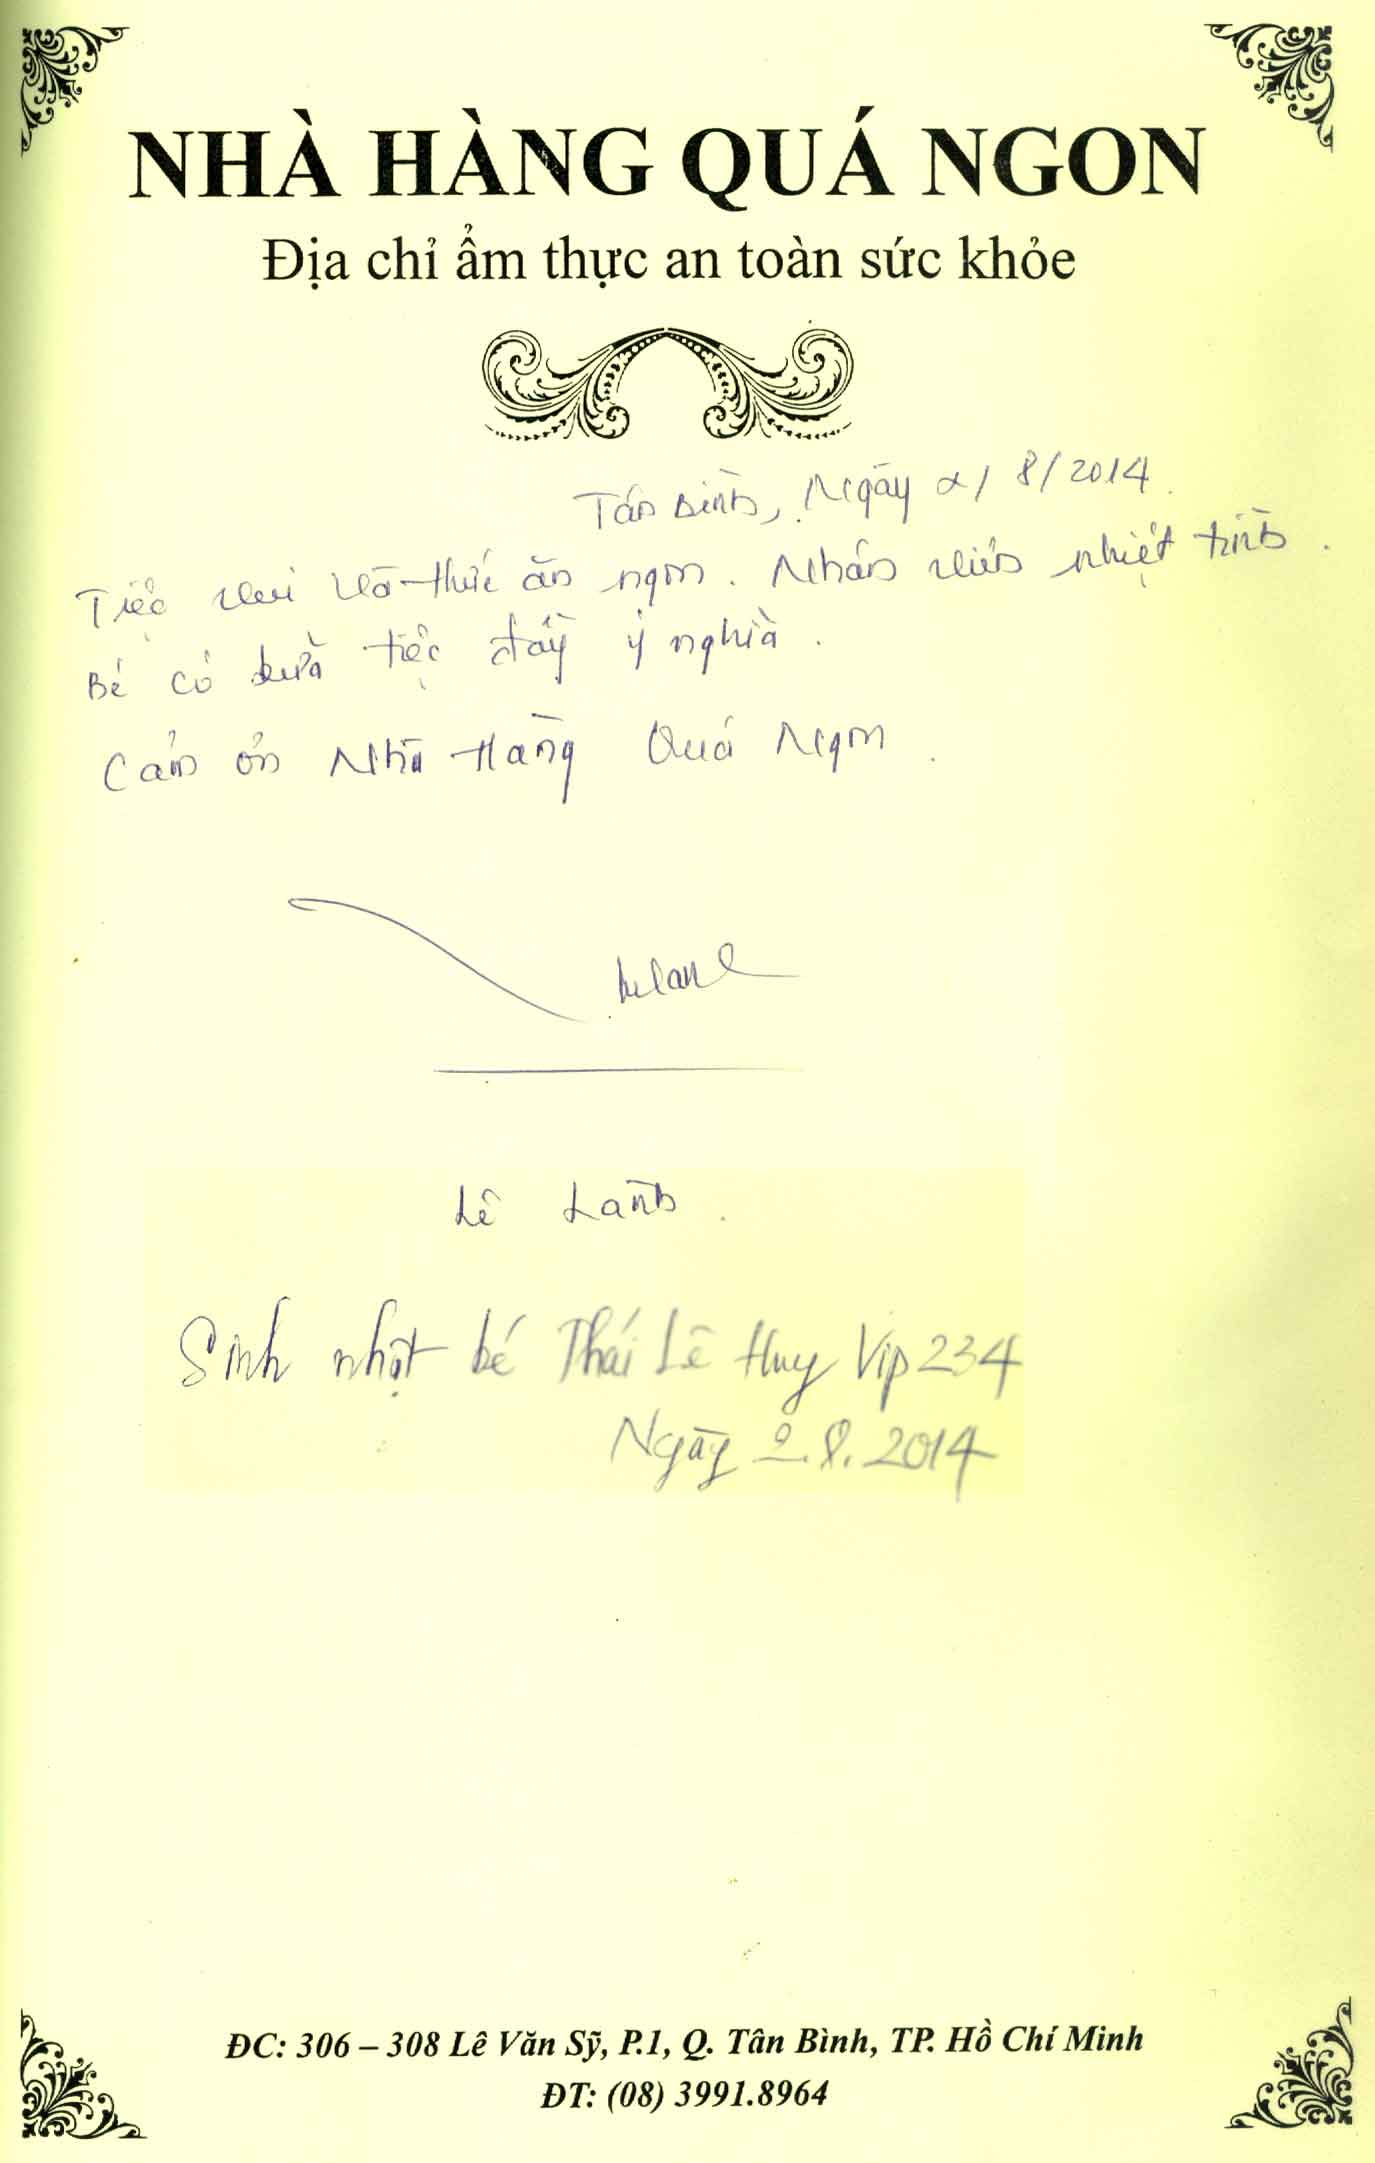 NHÀ HÀNG QUÁ NGON
Địa chỉ ẩm thực an toàn sức khỏe
Tân Bình, Ngày 2/8/2014.
Tiệc vui và thức ăn ngon. Nhân viên nhiệt tình.
Bé có bữa tiệc đầy ý nghĩa.
Cảm ơn Nhà Hàng Quá Ngon.
Lê Lành.
Sinh nhật bé Thái Lê Huy Vip 234
Ngày 2.8.2014
ĐC: 306 – 308 Lê Văn Sỹ, P.1, Q. Tân Bình, TP. Hồ Chí Minh
ĐT: (08) 3991.8964